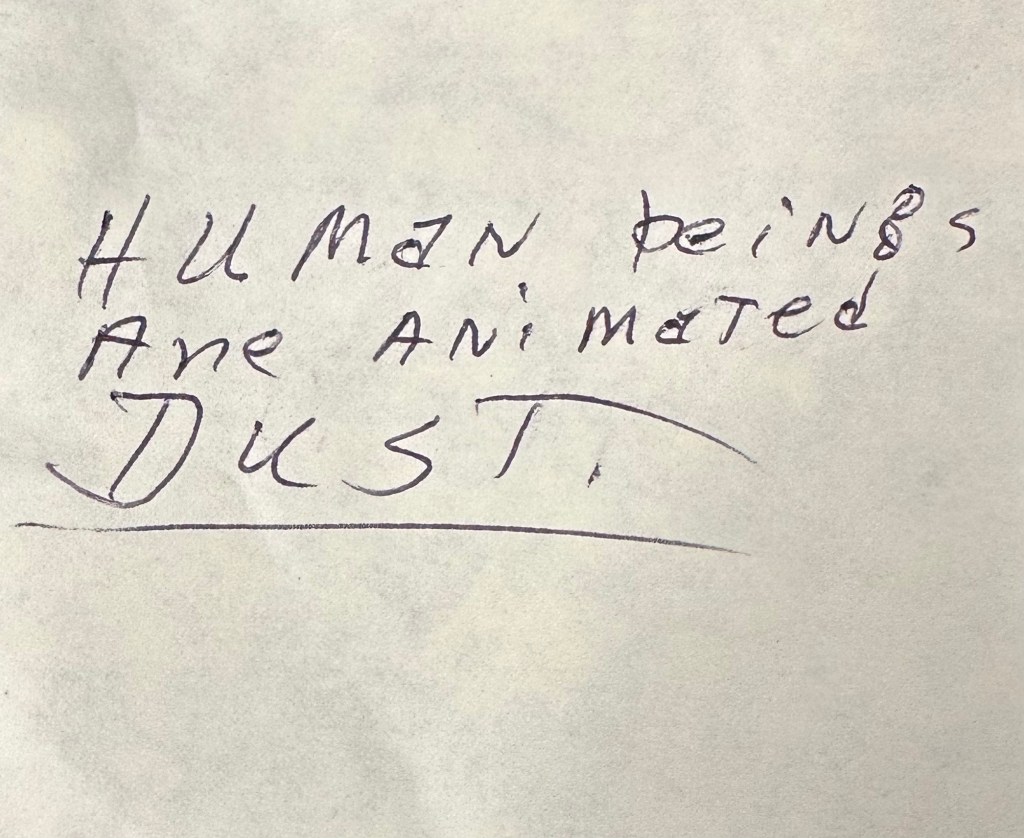 HUMaN beiNgs
Are ANiMaTed
DUST.